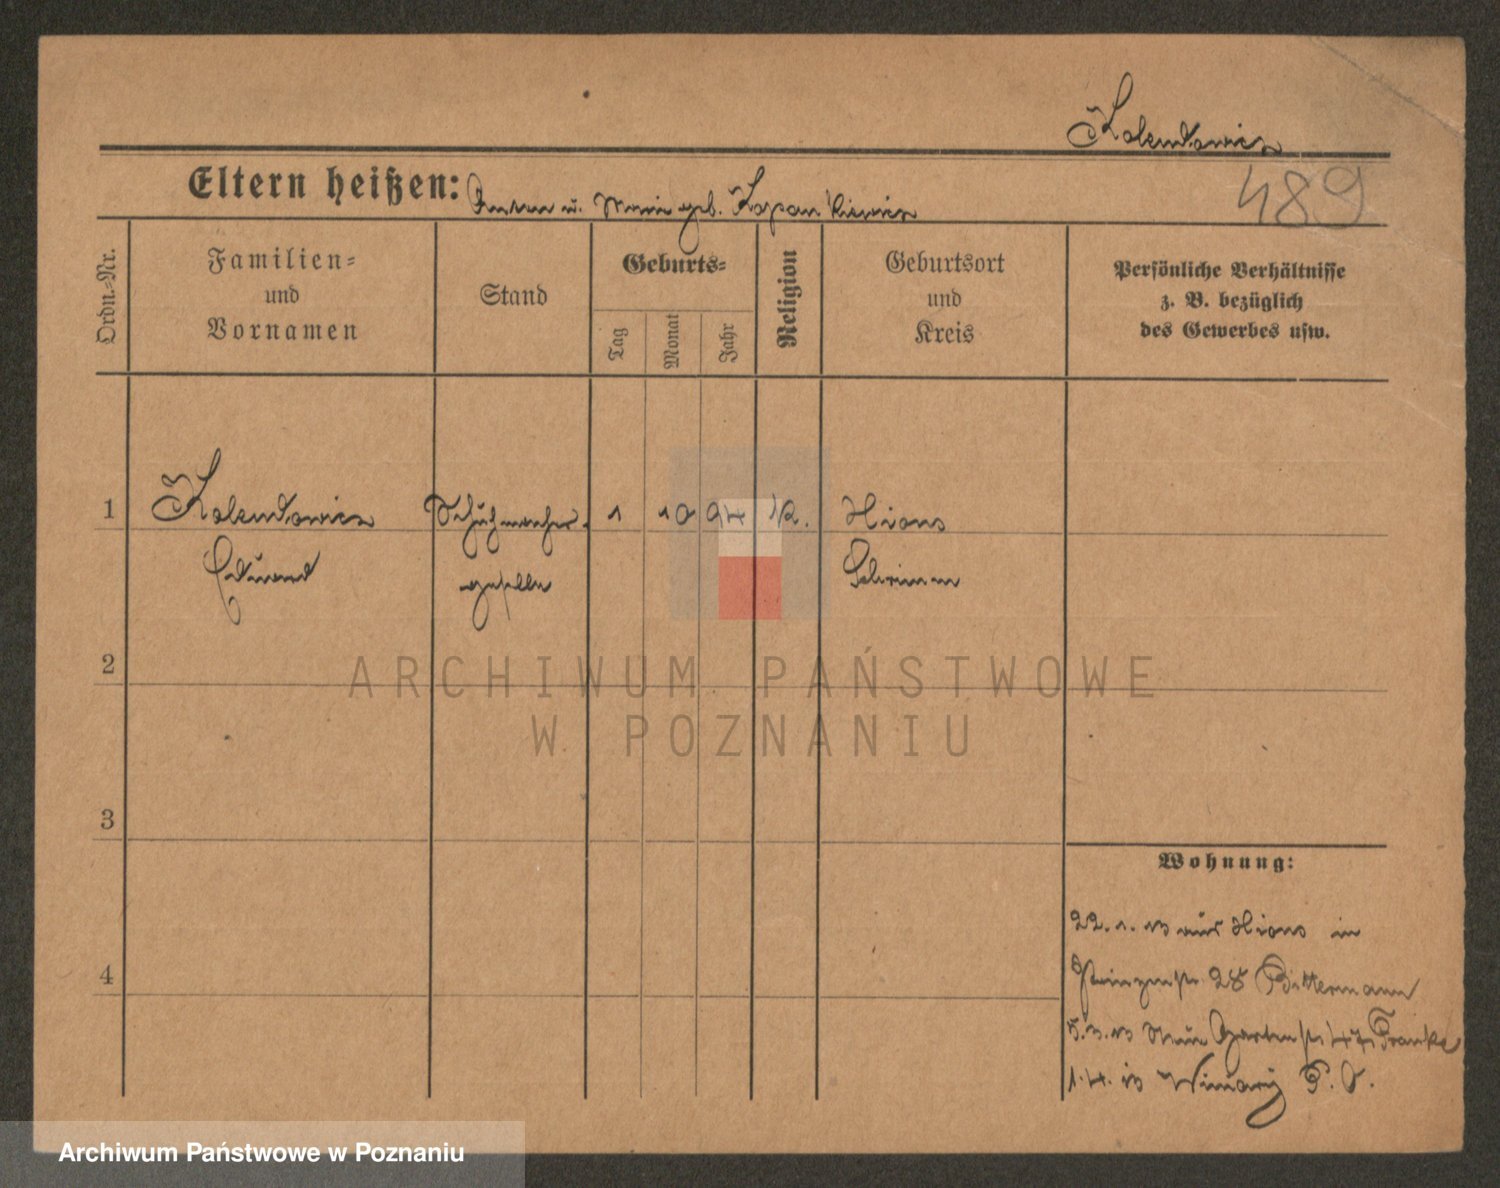 Kolendowicz
Eltern heißen: Anton u. Marie geb. Kapankiewicz
489
Ordn.-Nr.
Familien- und Vornamen
Stand
Geburts-
Tag
Monat
Jahr
Religion
Geburtsort und Kreis
Persönliche Verhältnisse
z. B. bezüglich
des Gewerbes usw.
1 Kolendowicz Schuhmacher- 1 10 94 K. Xions
Eduard geselle Schrimm
2
3
4
Wohnung:
22. 1. 13 aus Xions in
Prinzenstr. 28 Bittermann
5. 3. 13 Neue Gartenstr. 47, Franke
1. 4. 13 Winiary P. O.
ARCHIWUM PAŃSTWOWE
W POZNANIU
Archiwum Państwowe w Poznaniu